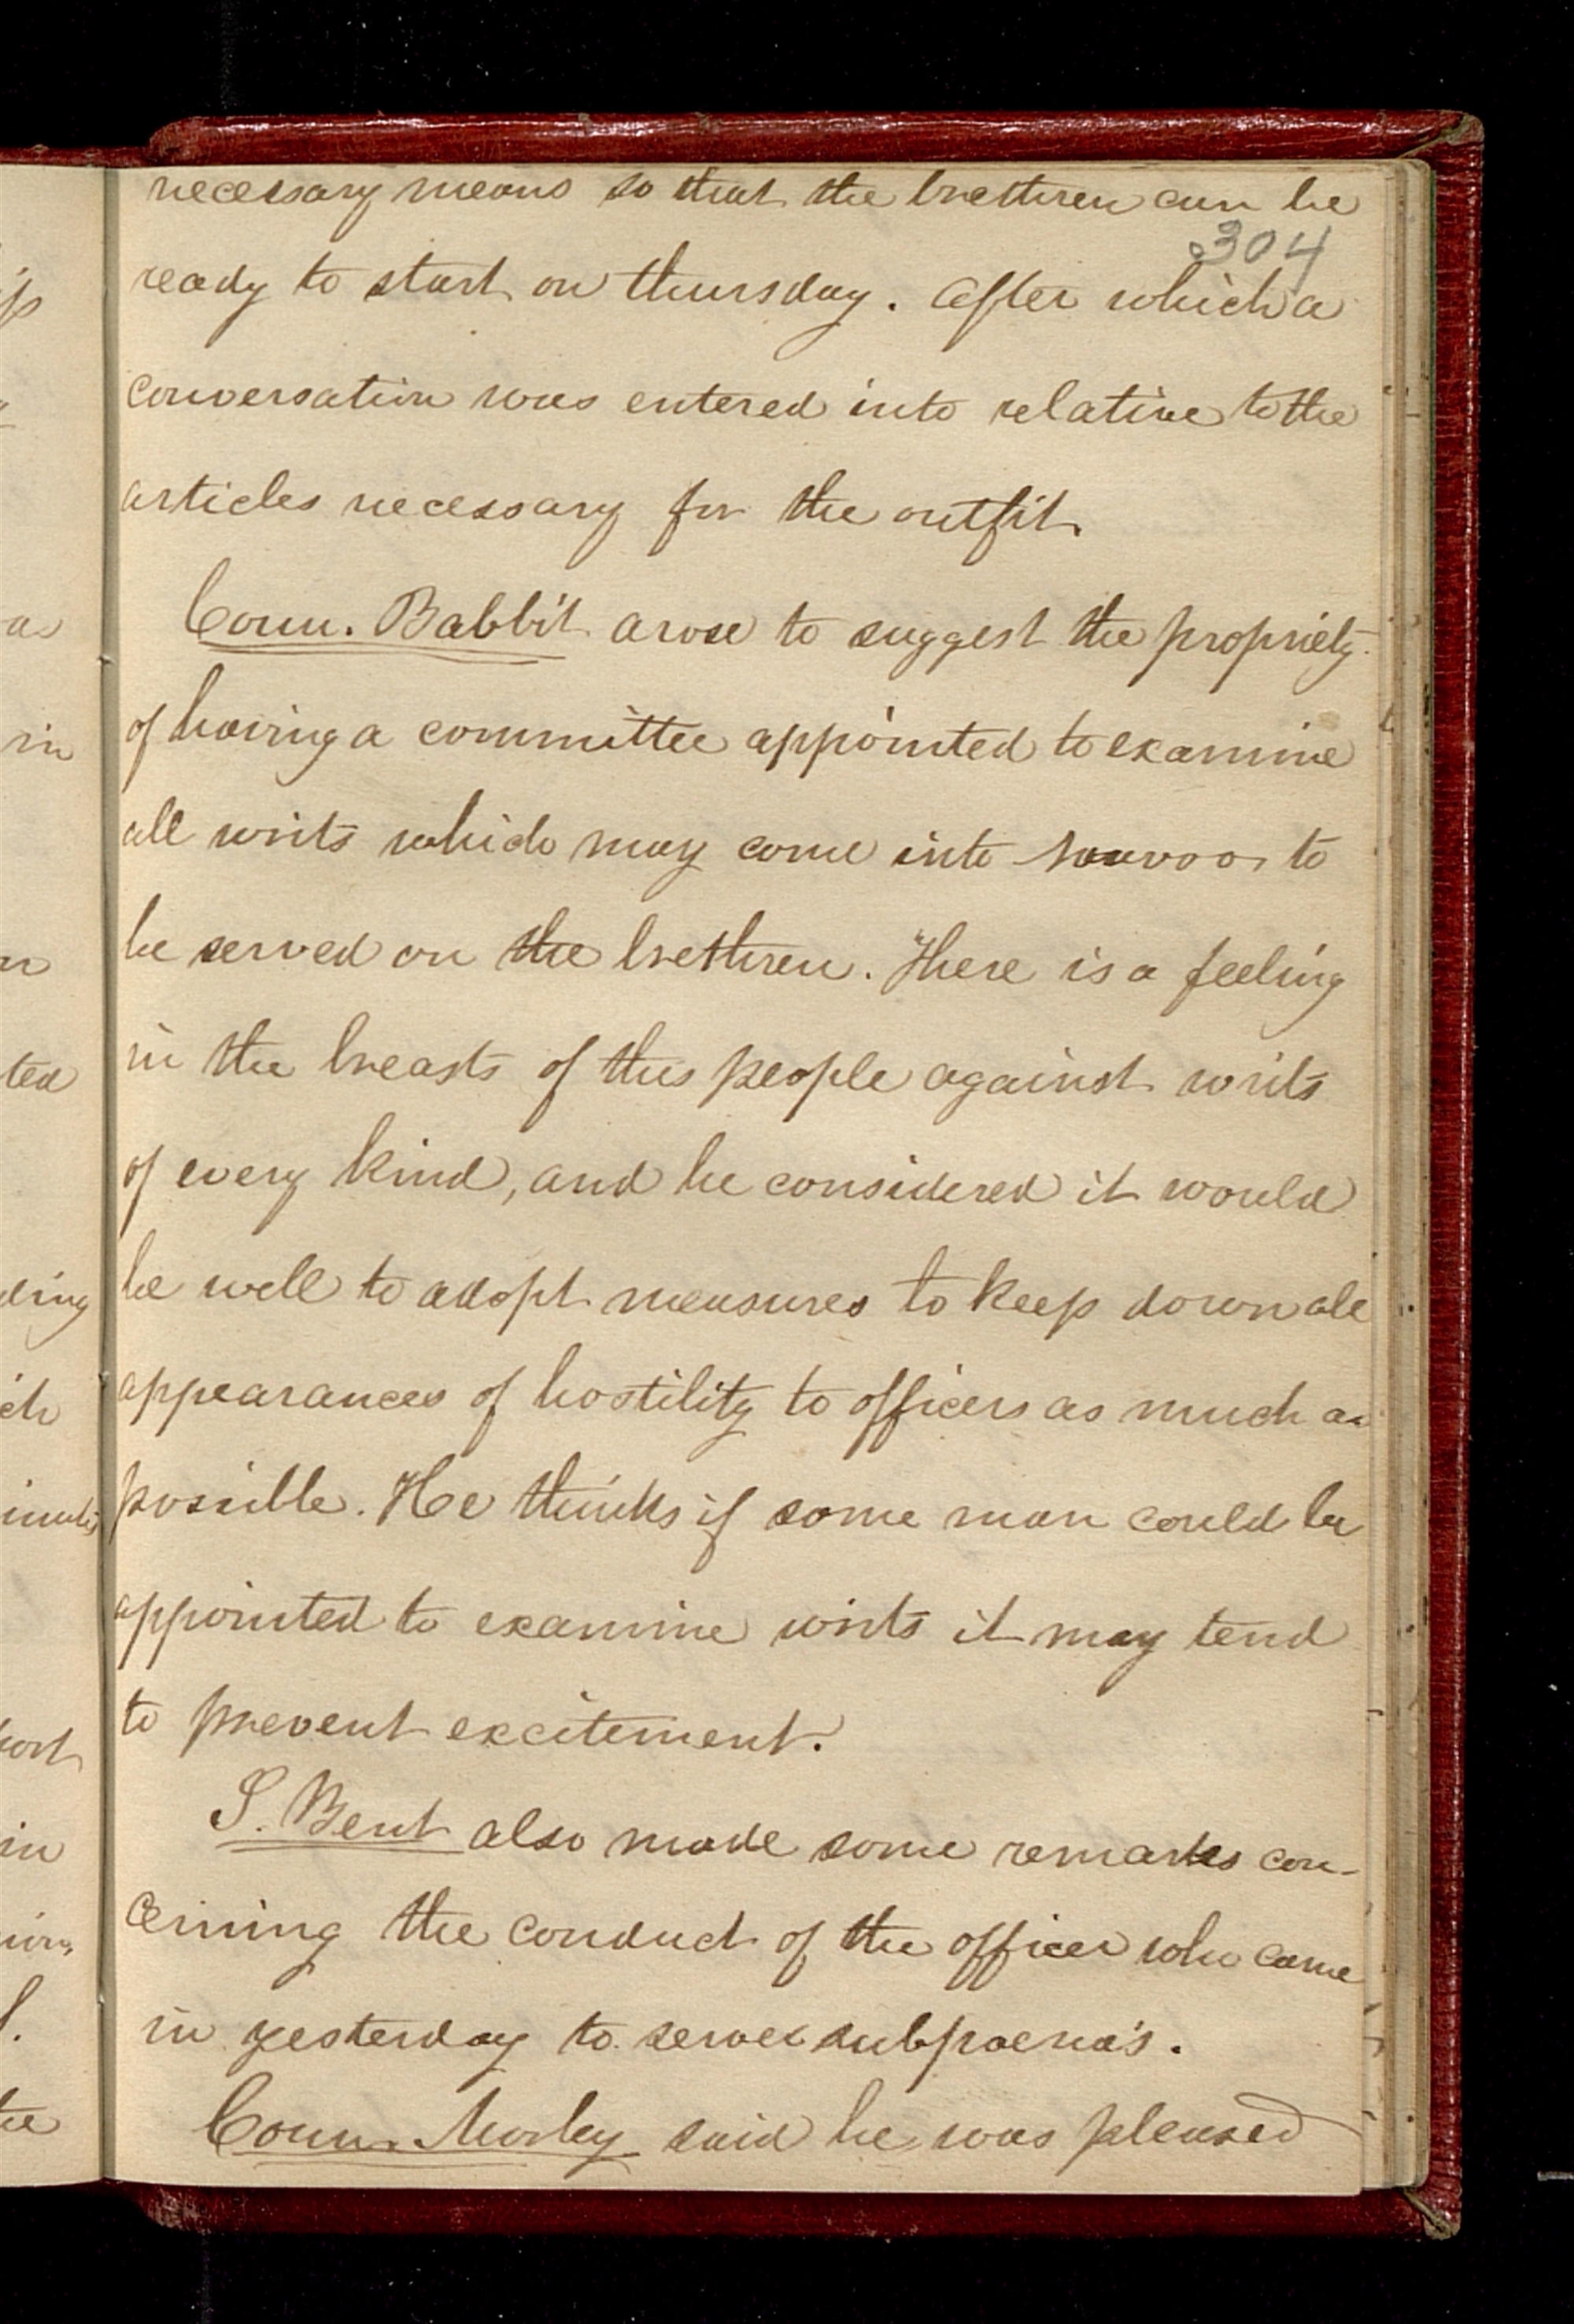 necessary means so that the brethren can be
304
ready to start on thursday. After which a
conversation was entered into relative to the
articles necessary for the outfit.
Coun. Babbit arose to suggest the propriety
of having a committee appointed to examine
all writs which may come into Nauvoo, to
be served on the brethren. There is a feeling
in the breasts of this people against writs
of every kind, and he considered it would
be well to adopt measures to keep down all
appearances of hostility to officers as much as
possible. He thinks if some man could be
appointed to examine writs it may tend
to prevent excitement.
S. Bent also made some remarks con-
cerning the conduct of the officer who came
in yesterday to serve subpoena's.
Coun. Morley said he was pleased